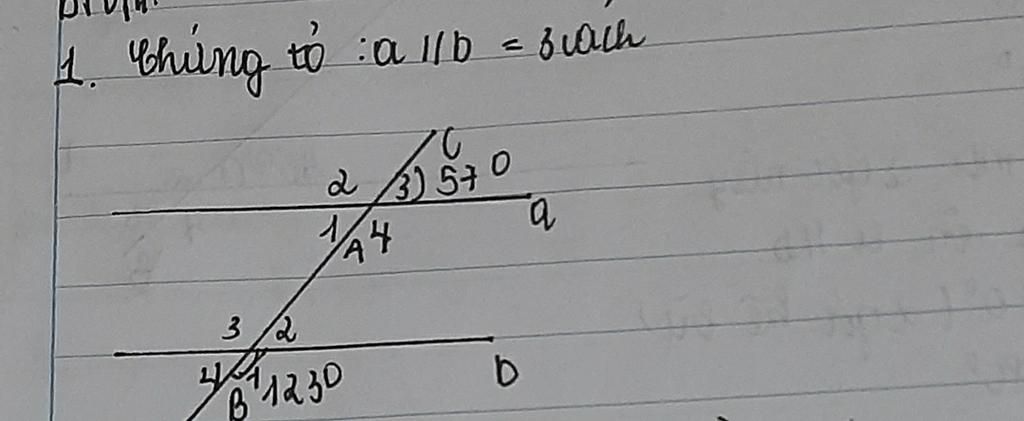 1. Chứng tỏ : a // b = 3 cách
c
2 3) 57 0
a
1 A 4
3 2
4 1 123 0
B b